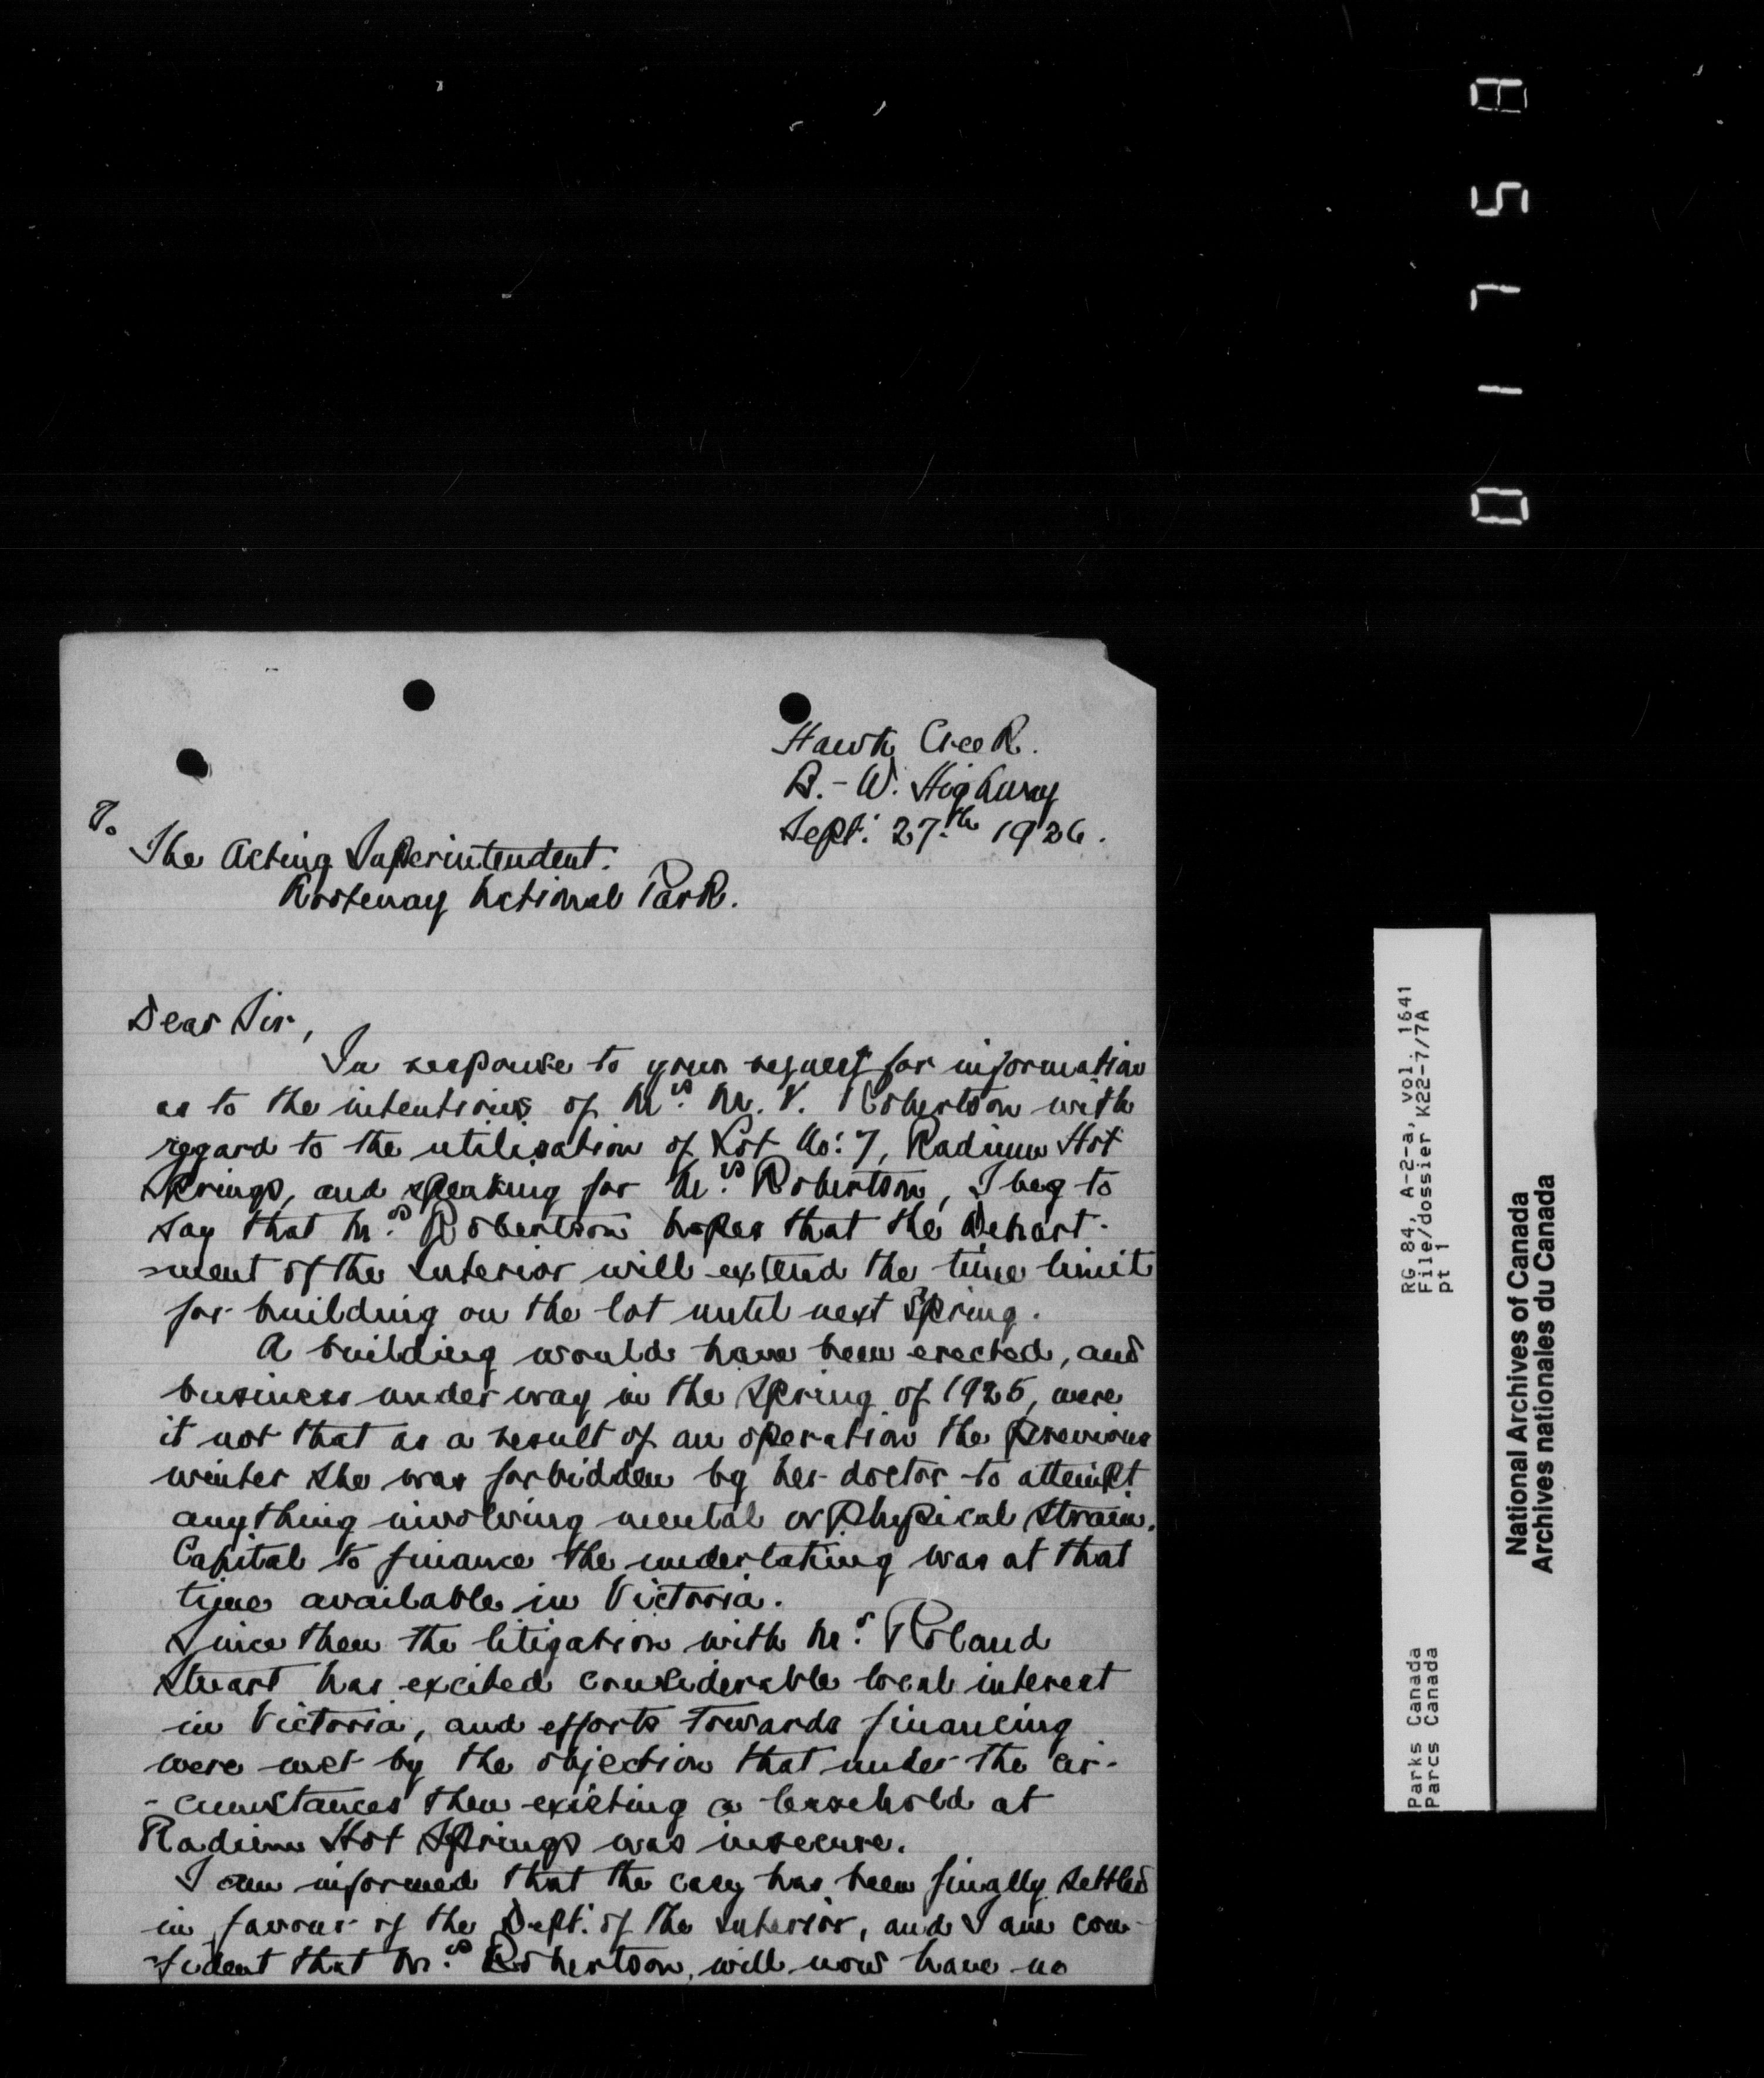 Hawk Creek.
B.-W. Highway
Sept: 27th 1926.
To
The Acting Superintendent.
Kootenay National Park.
Dear Sir,
In response to your request for information
as to the intentions of Mrs. M. V. Robertson with
regard to the utilisation of Lot No: 7, Radium Hot
Springs, and speaking for Mrs. Robertson, I beg to
say that Mrs. Robertson hopes that the Depart-
-ment of the Interior will extend the time limit
for building on the lot until next Spring.
A building would have been erected, and
business under way in the Spring of 1925, were
it not that as a result of an operation the previous
winter she was forbidden by her doctor to attempt
anything involving mental or physical strain.
Capital to finance the undertaking was at that
time available in Victoria.
Since then the litigation with Mr. Roland
Stuart has excited considerable local interest
in Victoria, and efforts towards financing
were met by the objection that under the cir-
-cumstances then existing a leasehold at
Radium Hot Springs was insecure.
I am informed that the case has been finally settled
in favour of the Dept. of the Interior, and I am con-
-fident that Mrs. Robertson, will now have no
01758
RG 84, A-2-a, vol. 1641
File/dossier K22-7/7A
pt 1
Parks Canada
Parcs Canada
National Archives of Canada
Archives nationales du Canada